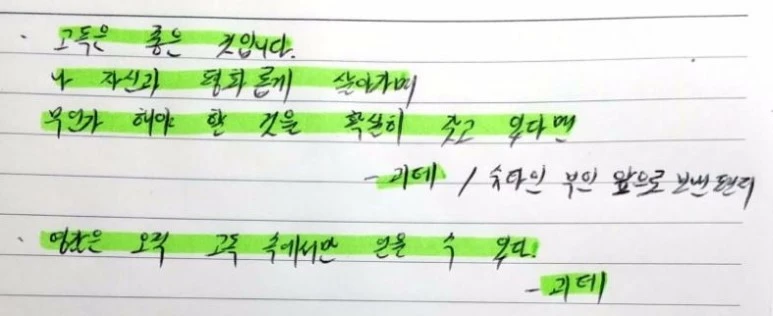 · 고독은 좋은 것입니다.
나 자신과 평화롭게 살아가며
무언가 해야 할 것을 확실히 갖고 있다면
- 괴테 / 슈타인 부인 앞으로 보낸 편지
· 영감은 오직 고독 속에서만 얻을 수 있다.
- 괴테